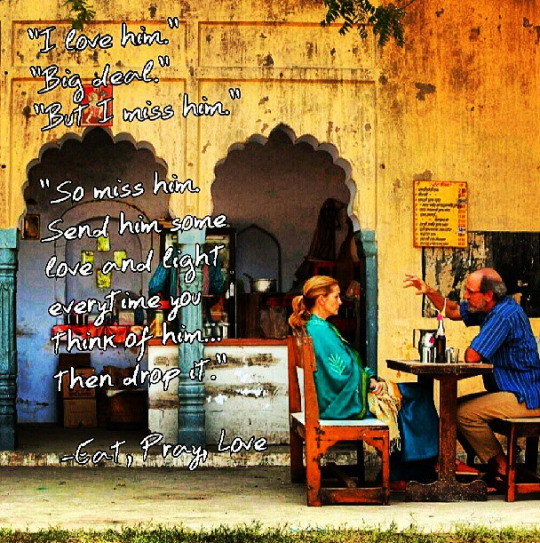 "I love him."
"Big deal."
"But I miss him."
"So miss him.
Send him some
love and light
everytime you
think of him...
Then drop it."
-Eat, Pray, Love